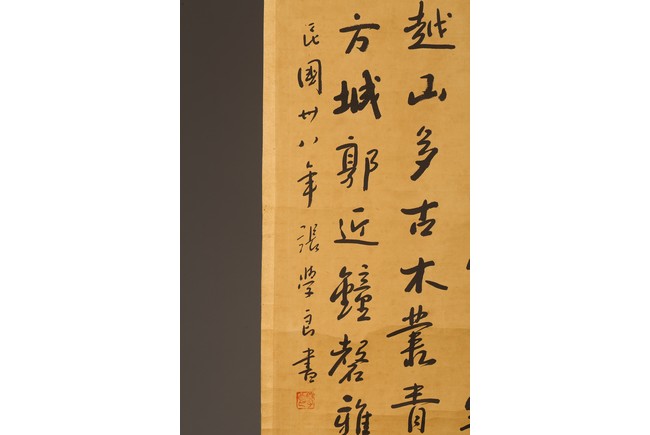 越山多古木叢青
方城郭近鐘磬雅
民國廿八年張學良書